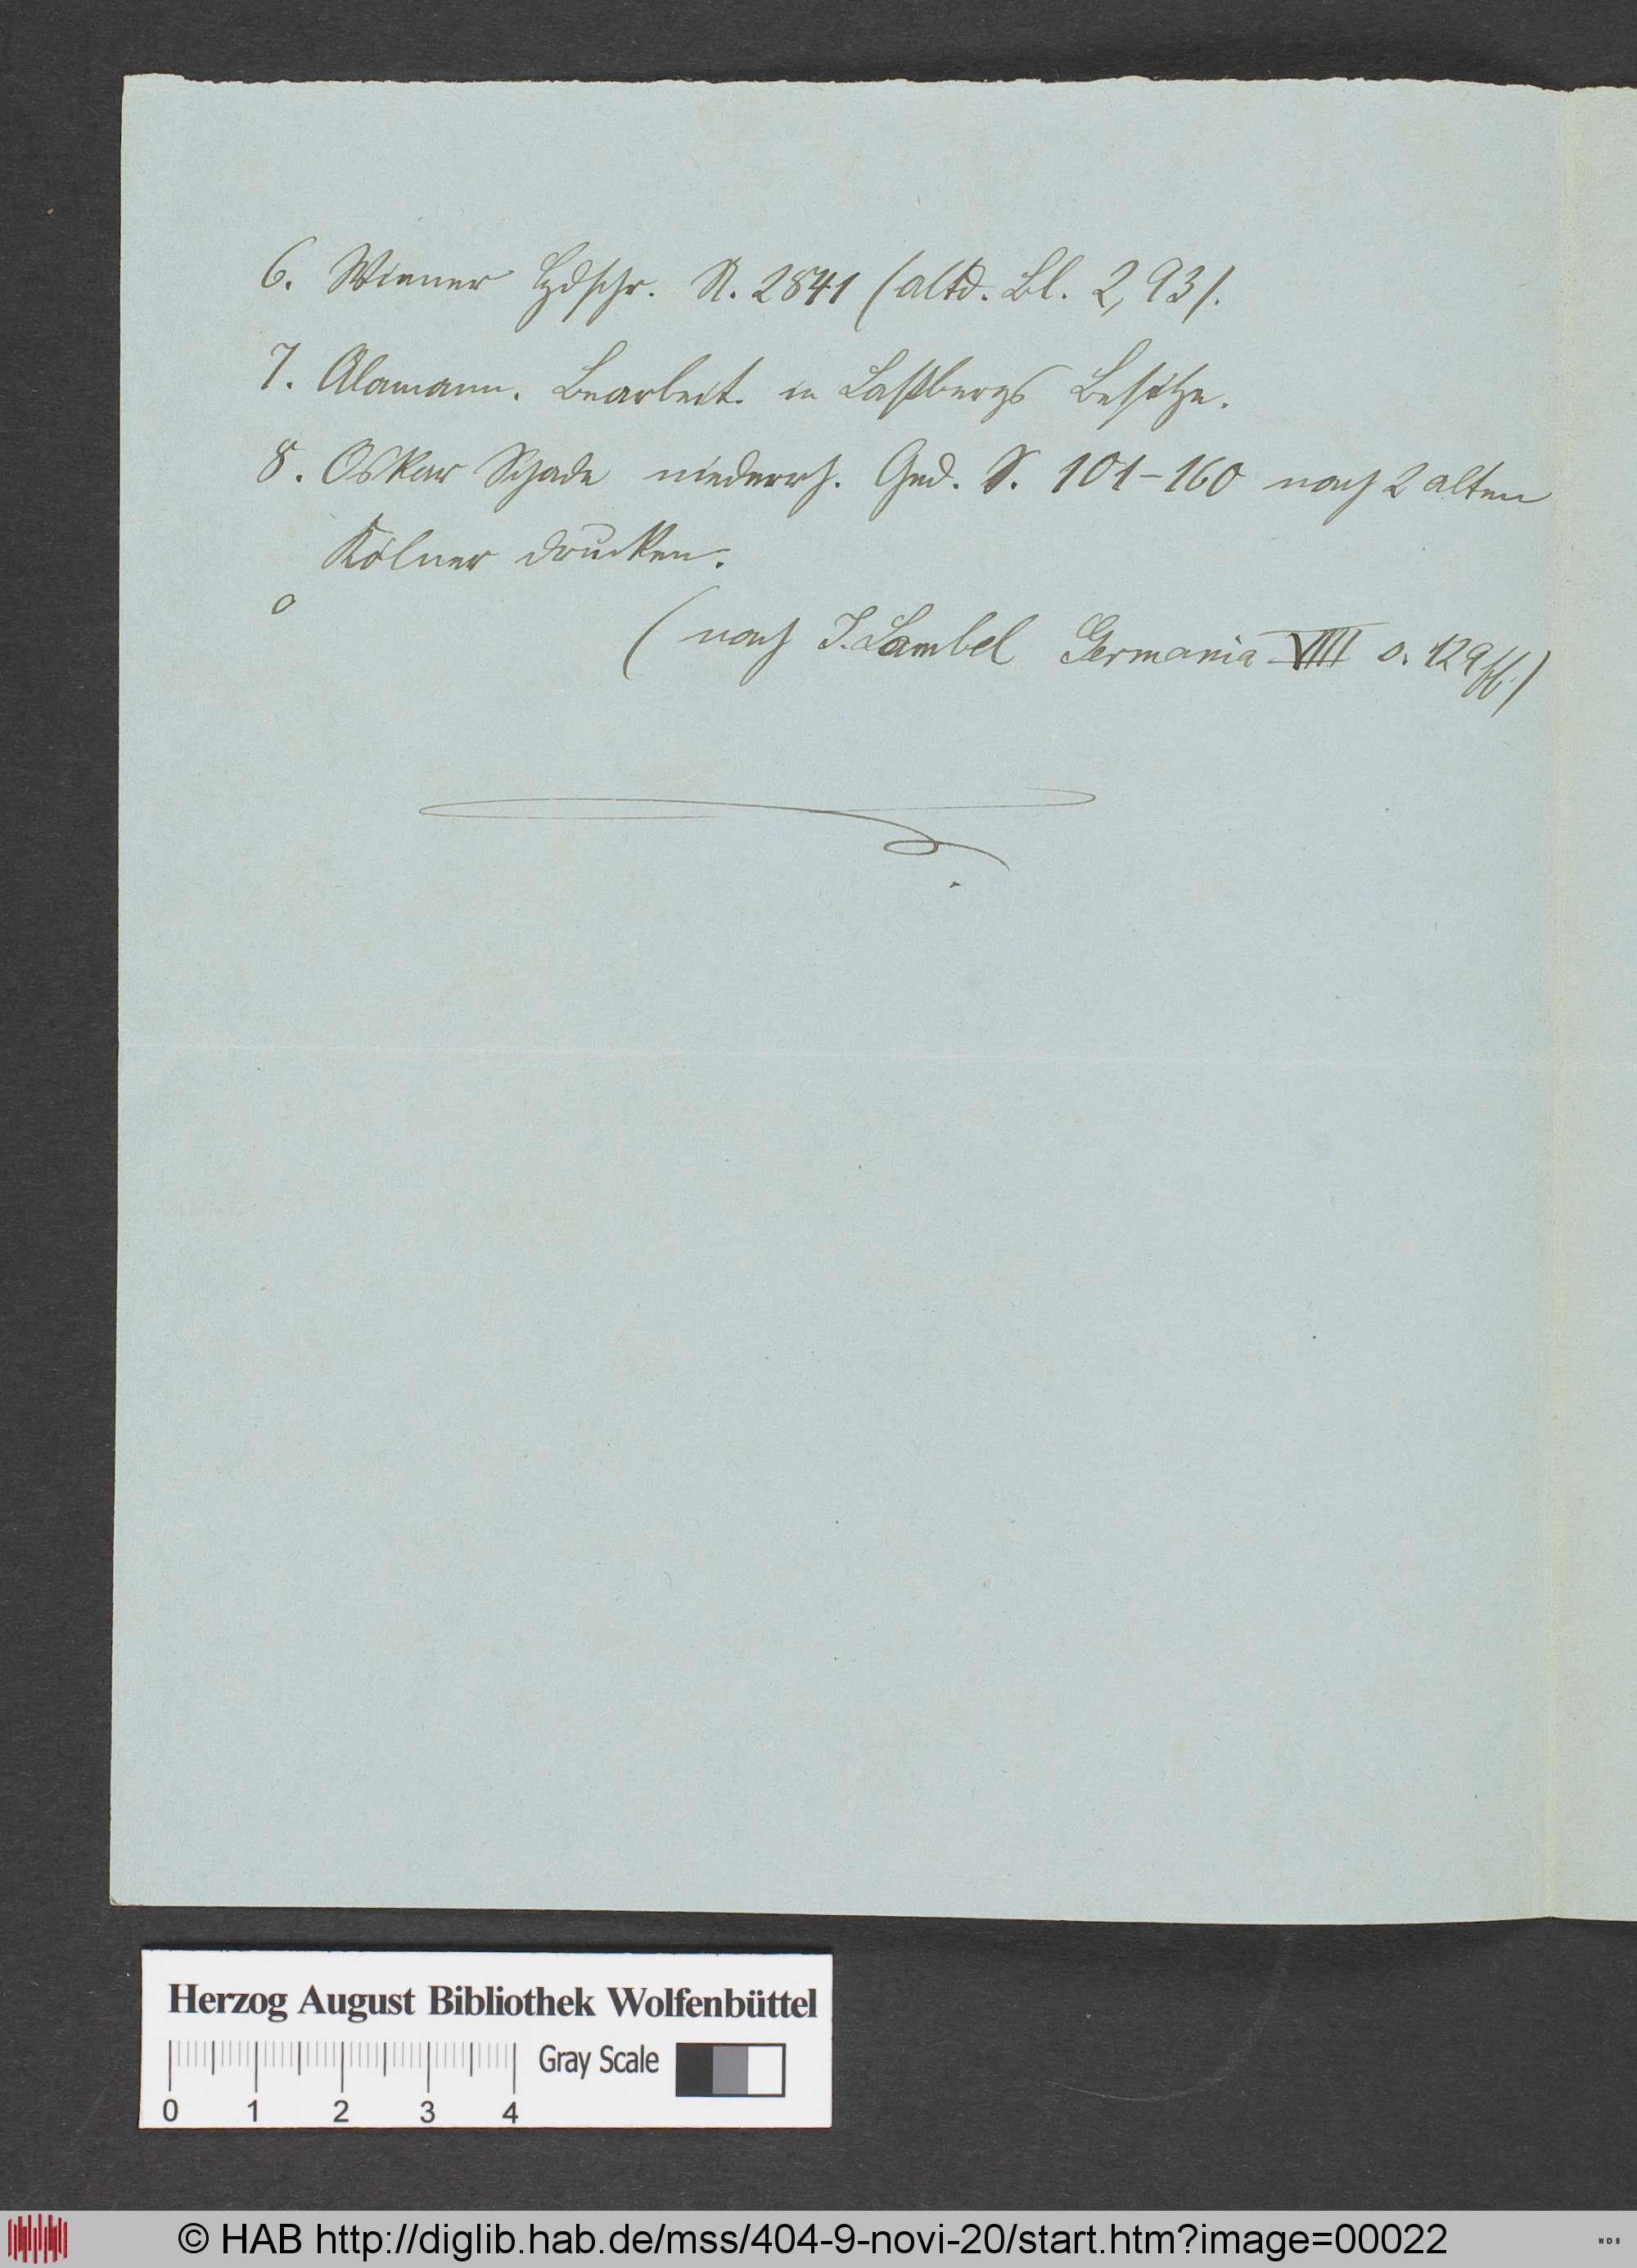 6. Wiener Hdschr. N. 2841 (altd. Bl. 2,93).
7. Alamann. Bearbeit. in Laßbergs Besitze.
8. Oskar Schade niederrh. Ged. S. 101-160 nach 2 alten
Kölner Drucken.
(nach J. Lambel Germania VIIII S. 129ff.)
Herzog August Bibliothek Wolfenbüttel
Gray Scale
0 1 2 3 4
© HAB http://diglib.hab.de/mss/404-9-novi-20/start.htm?image=00022
WDB